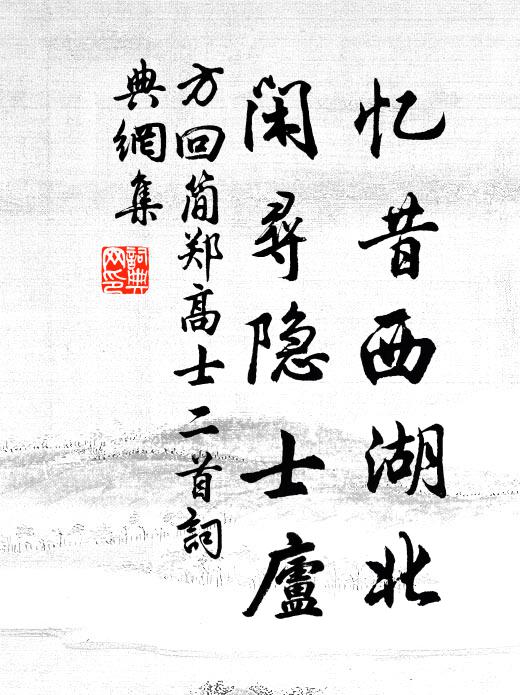 忆昔西湖北
闲寻隐士廬
方回简郑高士二首詞
典網集
詞典
网印